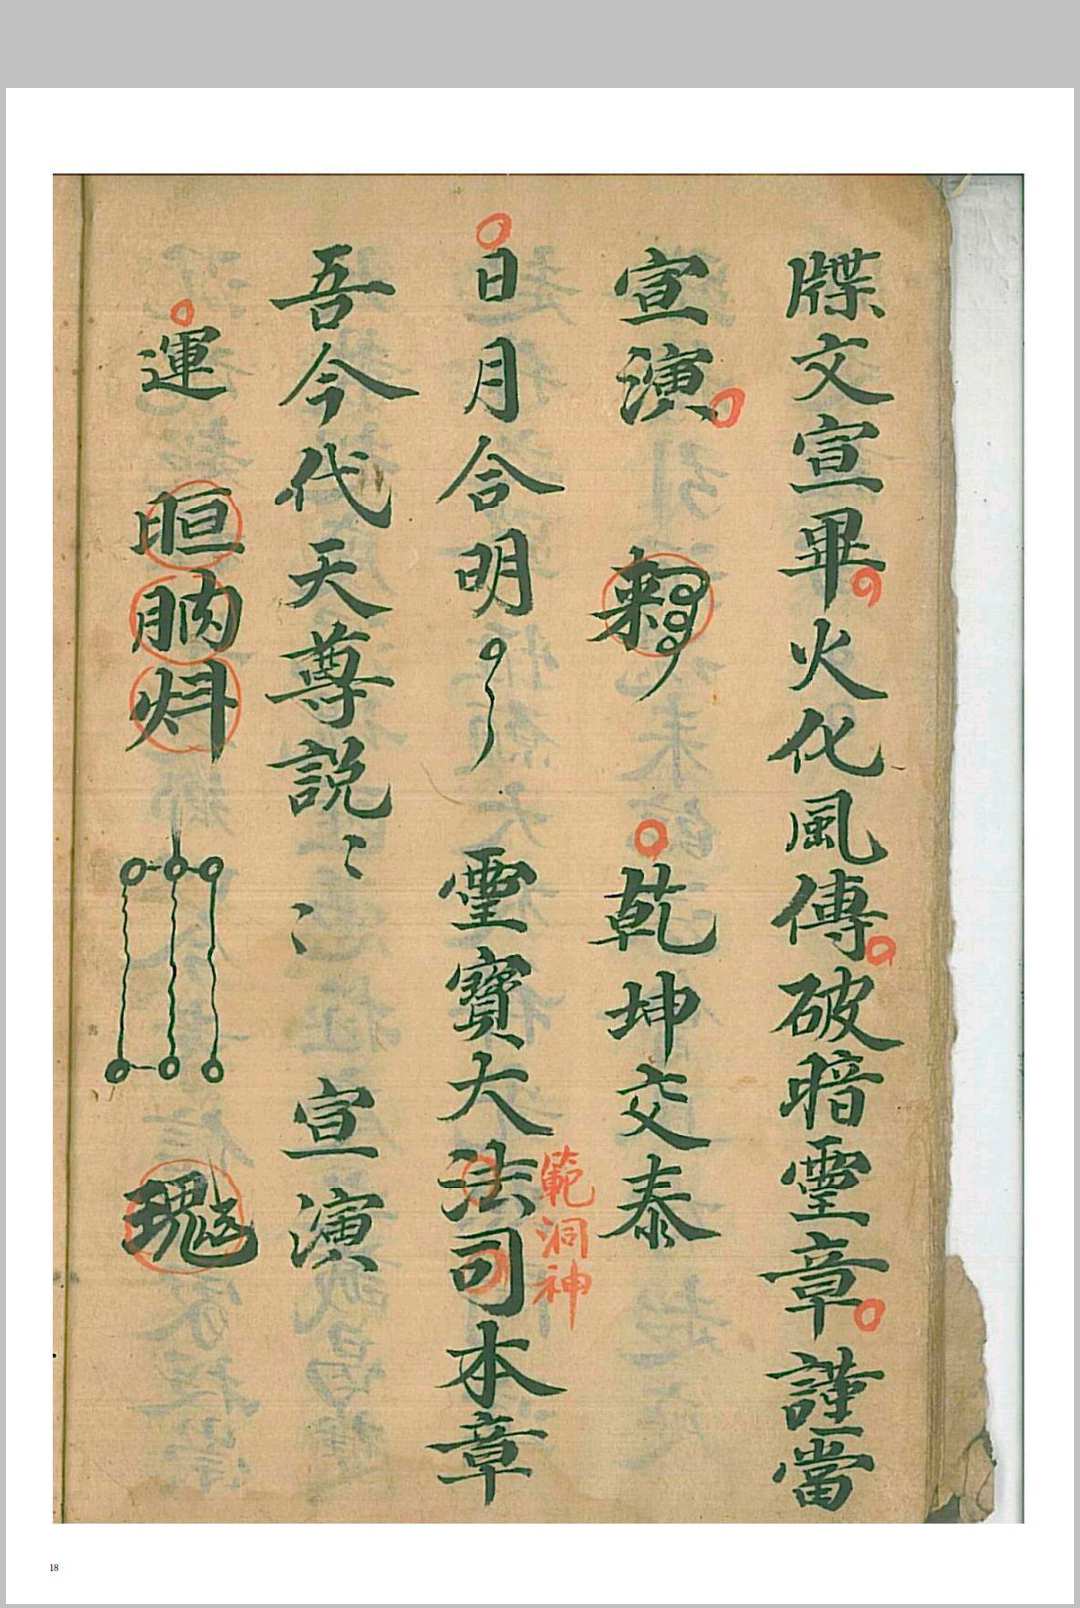 牒文宣畢火化風傳破暗靈章謹當
宣演 乾坤交泰
日月合明 靈寶大法司本章
範洞神
吾今代天尊説 宣演
運
18